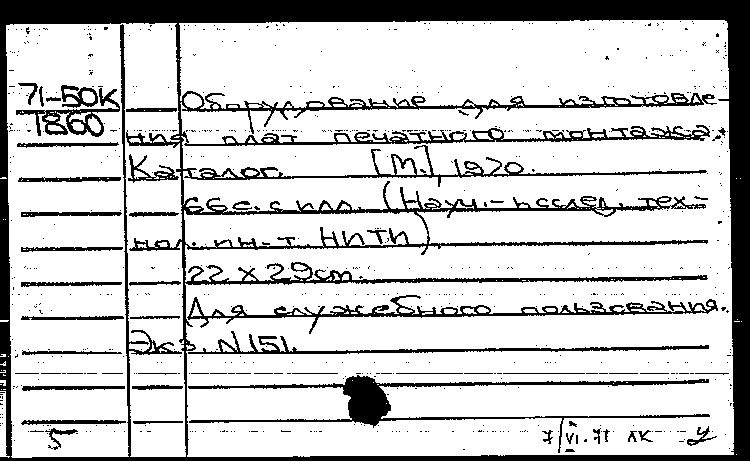 71-50К
1860
Оборудование для изготовле-
ния плат печатного монтажа.
Каталог. [М.], 1970.
66 с. с илл. (Науч.-исслед. тех-
нол. ин-т НИТИ).
22 x 29 см.
Для служебного пользования.
Экз. N 151.
5
7/VI-71 ЛК У